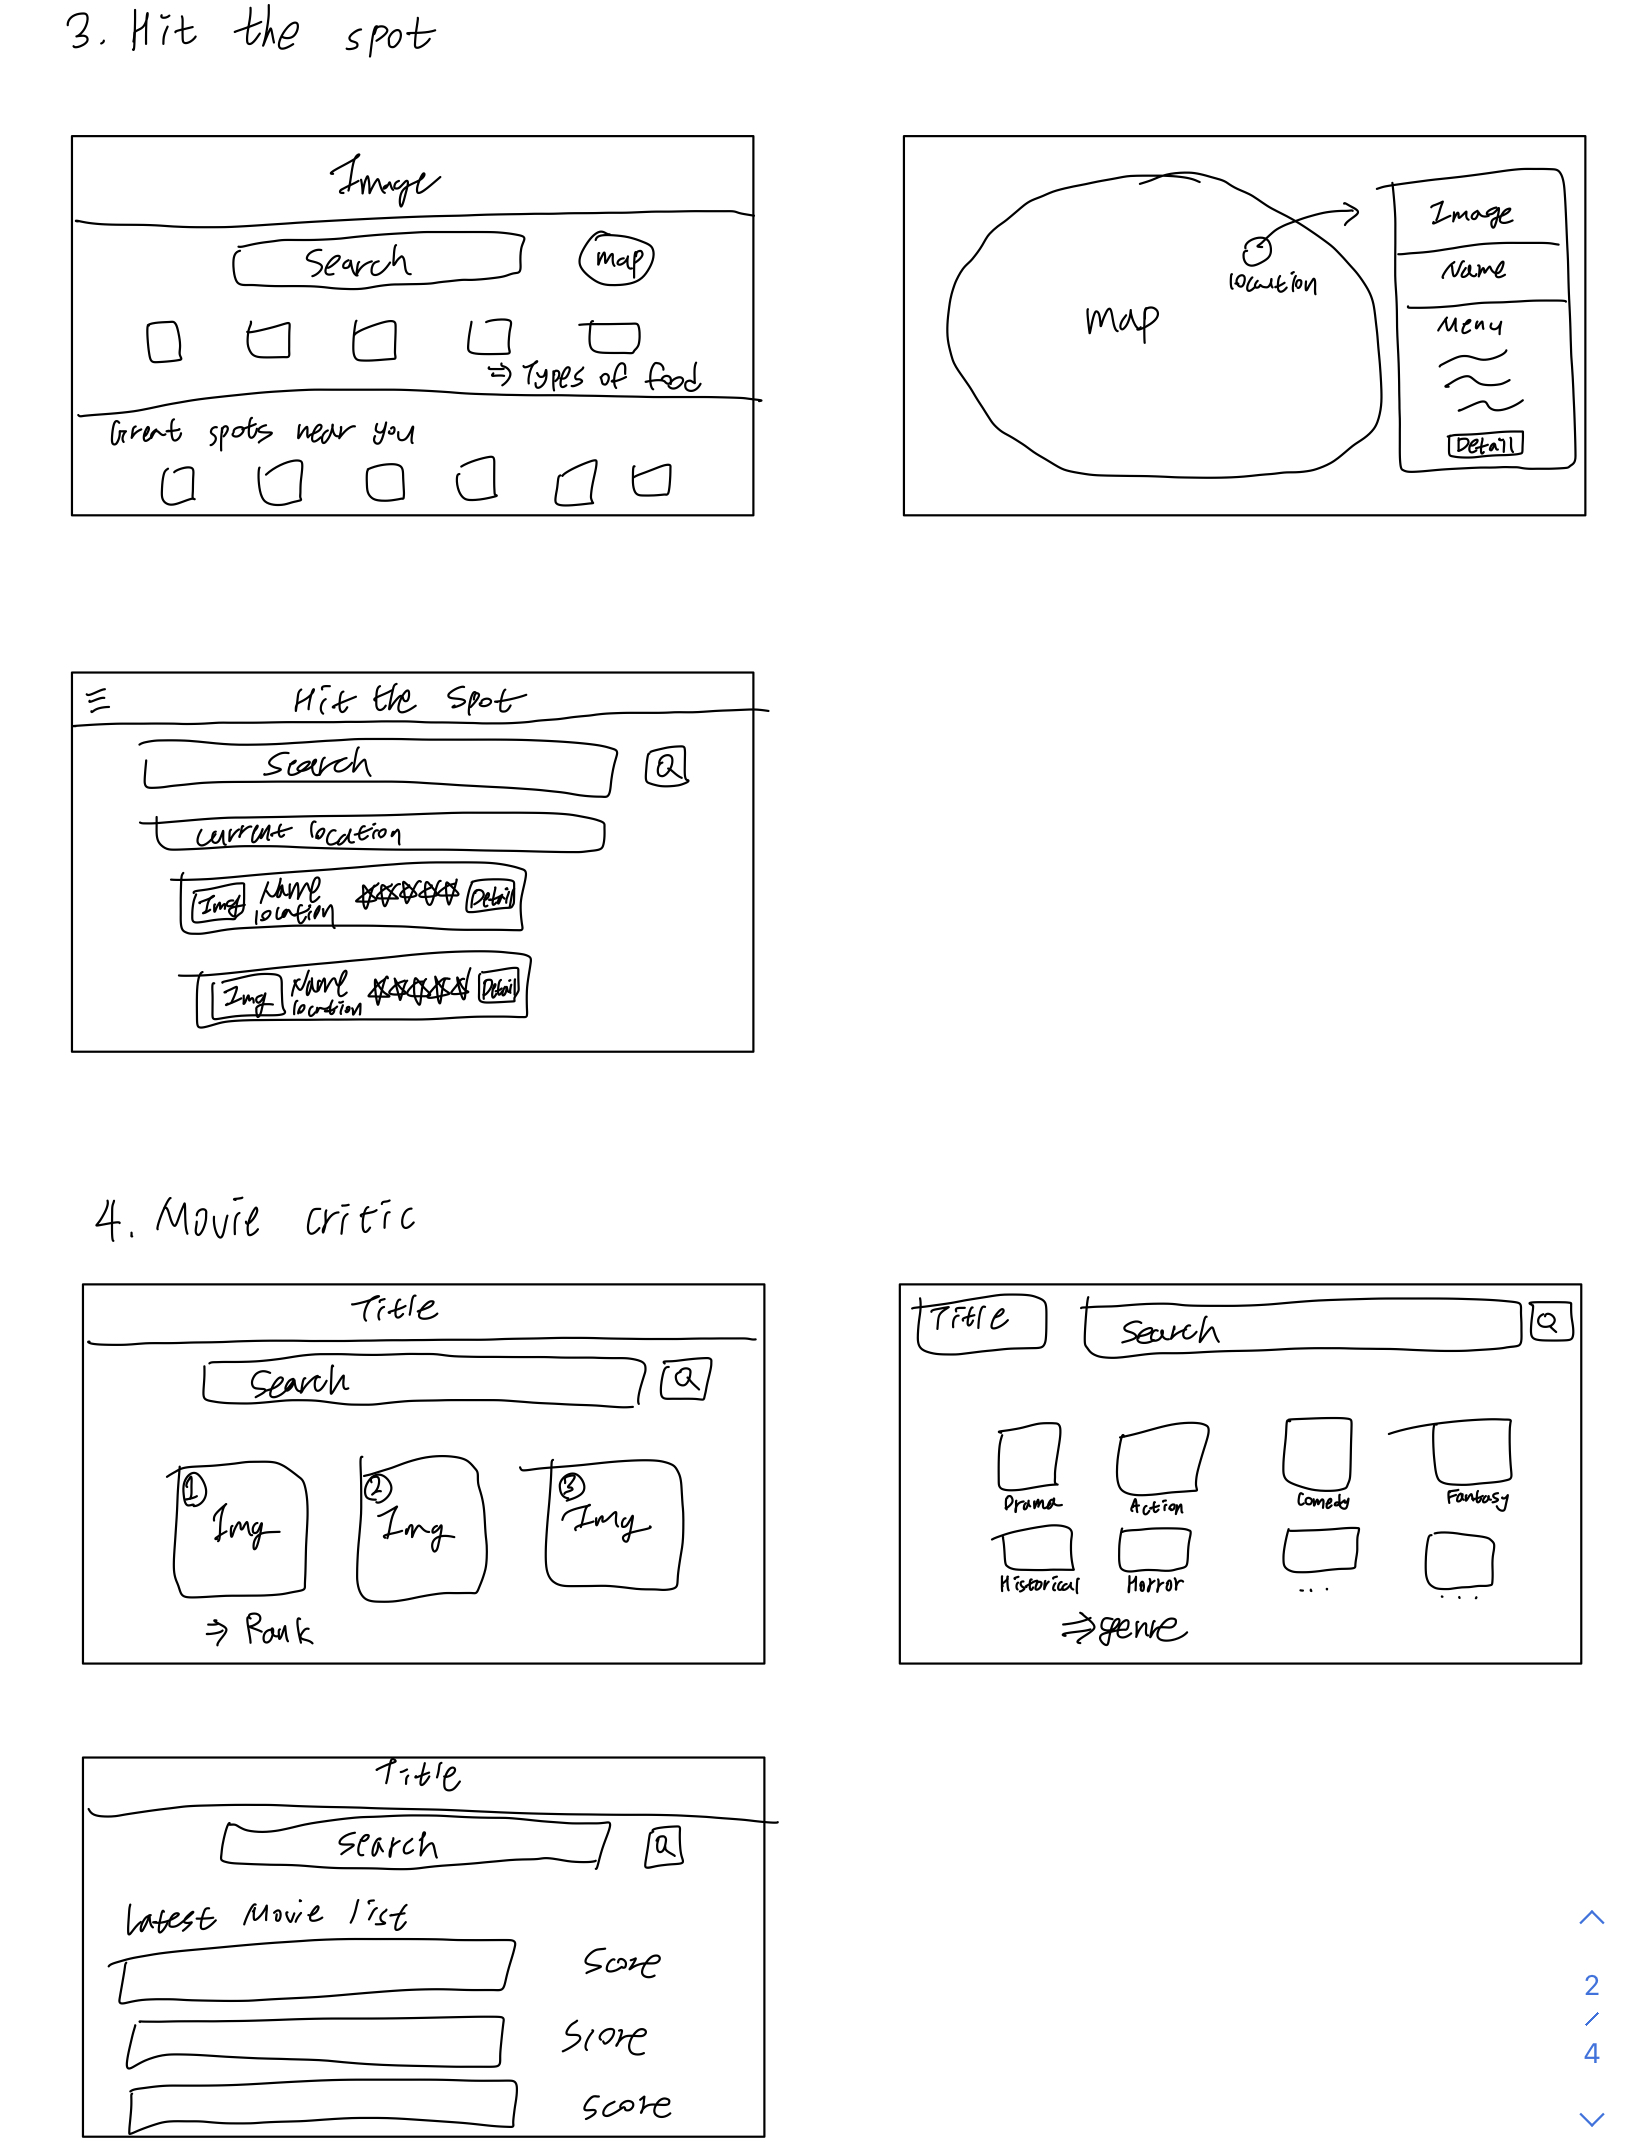 3. Hit the spot
Image
Search
map
⇒ Types of food
Great spots near you
Image
location
Name
map
Menu
Detail
Hit the Spot
Search
Q
current location
Img Name Detail
location
Img Name Detail
location
4. Movie critic
Title
Search
Q
1 2 3
Img Img Img
⇒ Rank
Title Search Q
Drama Action Comedy Fantasy
Historical Horror ... ...
⇒ genre
Title
search
Q
Latest Movie list
Score
Score
score
2
/
4